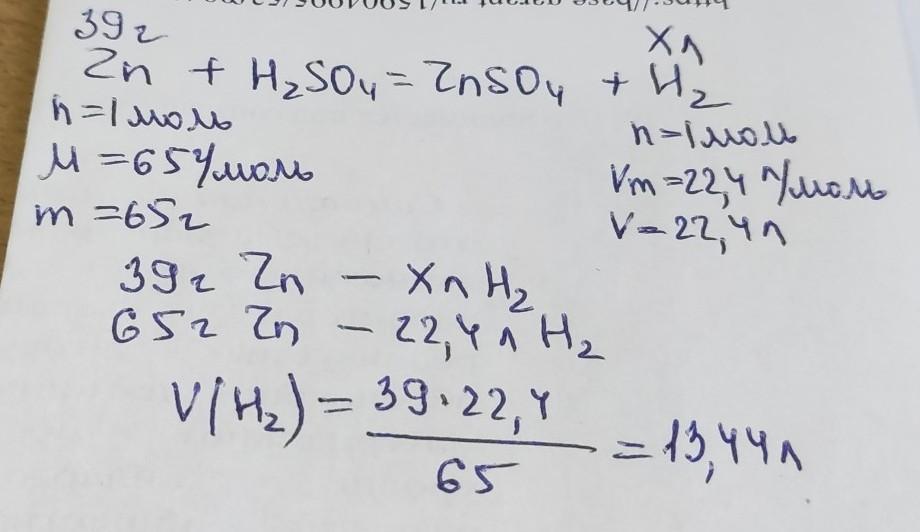 39г Xл
Zn + H₂SO₄ = ZnSO₄ + H₂
n=1моль n=1моль
M=65г/моль Vm=22,4 л/моль
m=65г V=22,4л
39г Zn — Xл H₂
65г Zn — 22,4 л H₂
V(H₂) = 39·22,4 / 65 = 13,44л